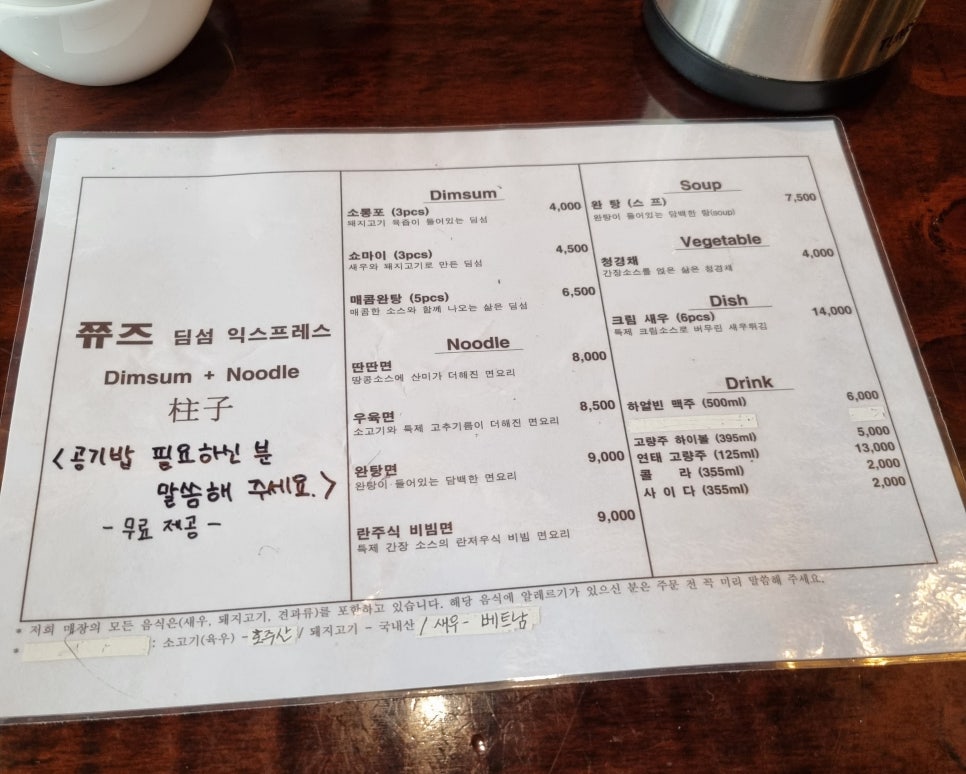 쮸즈 딤섬 익스프레스
Dimsum + Noodle
柱子
<공기밥 필요하신 분
말씀해 주세요.>
- 무료 제공 -
Dimsum
소롱포 (3pcs) 4,000
돼지고기 육즙이 들어있는 딤섬
쇼마이 (3pcs) 4,500
새우와 돼지고기로 만든 딤섬
매콤완탕 (5pcs) 6,500
매콤한 소스와 함께 나오는 삶은 딤섬
Noodle
딴딴면 8,000
땅콩소스에 산미가 더해진 면요리
우육면 8,500
소고기와 특제 고추기름이 더해진 면요리
완탕면 9,000
완탕이 들어있는 담백한 면요리
란주식 비빔면 9,000
특제 간장 소스의 란저우식 비빔 면요리
Soup
완 탕 (스 프) 7,500
완탕이 들어있는 담백한 탕(soup)
Vegetable
청경채 4,000
간장소스를 얹은 삶은 청경채
Dish
크림 새우 (6pcs) 14,000
특제 크림소스로 버무린 새우튀김
Drink
하얼빈 맥주 (500ml) 6,000
고량주 하이볼 (395ml) 5,000
연태 고량주 (125ml) 13,000
콜 라 (355ml) 2,000
사 이 다 (355ml) 2,000
* 저희 매장의 모든 음식은(새우, 돼지고기, 견과류)를 포함하고 있습니다. 해당 음식에 알레르기가 있으신 분은 주문 전 꼭 미리 말씀해 주세요.
* : 소고기(육우) - 호주산 / 돼지고기 - 국내산 / 새우 - 베트남